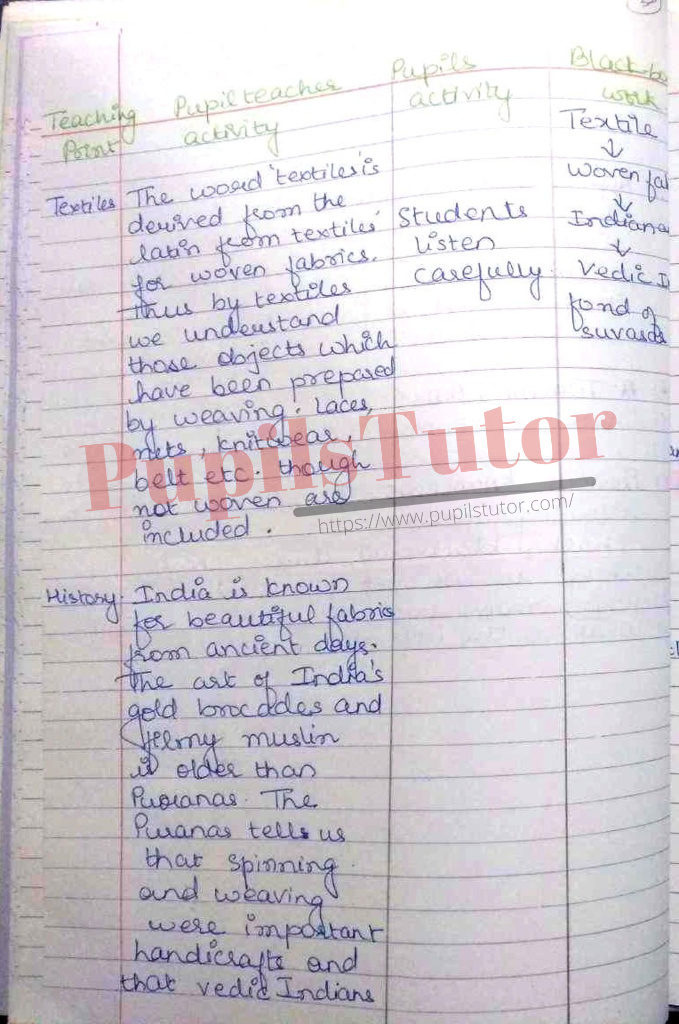 Teaching Point
Pupil teacher activity
Pupils activity
Black-bo
work
Textiles
The word 'textiles' is
derived from the
latin from textiles
for woven fabrics.
thus by textiles
we understand
those objects which
have been prepared
by weaving. Laces,
nets, knitwear,
belt etc. though
not woven are
included.
Students
listen
carefully.
Textile
↓
woven fa
↓
Indiana
↓
Vedic I
fond of
suvasa
PupilsTutor
https://www.pupilstutor.com/
History.
India is known
for beautiful fabric
from ancient days.
The art of India's
gold brocades and
filmy muslin
is older than
Puranas. The
Puranas tells us
that spinning
and weaving
were important
handicrafts and
that vedic Indians